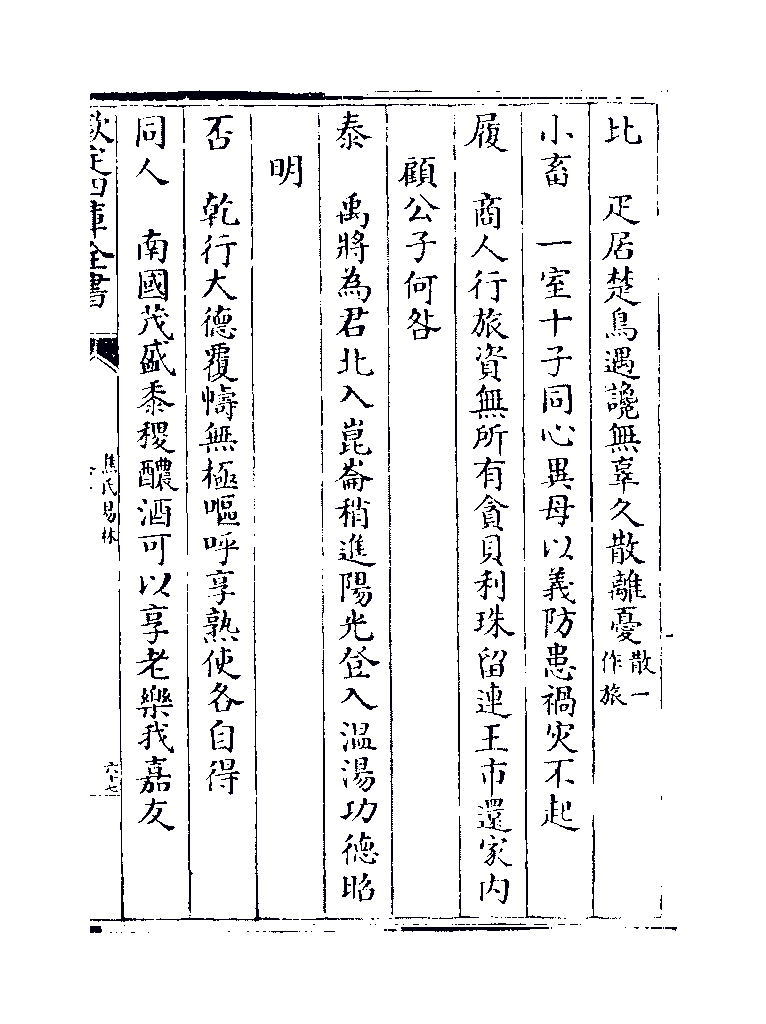 比　疋居楚鳥遇讒無辜久散離憂散一作旅
小畜　一室十子同心異母以義防患禍灾不起
履　商人行旅資無所有貪貝利珠留連王市還家内
顧公子何咎
泰　禹將為君北入崑崙稍進陽光登入温湯功德昭
明
否　乾行大德覆幬無極嘔呼享熟使各自得
同人　南國茂盛黍稷醲酒可以享老樂我嘉友
欽定四庫全書
焦氏易林
六十七